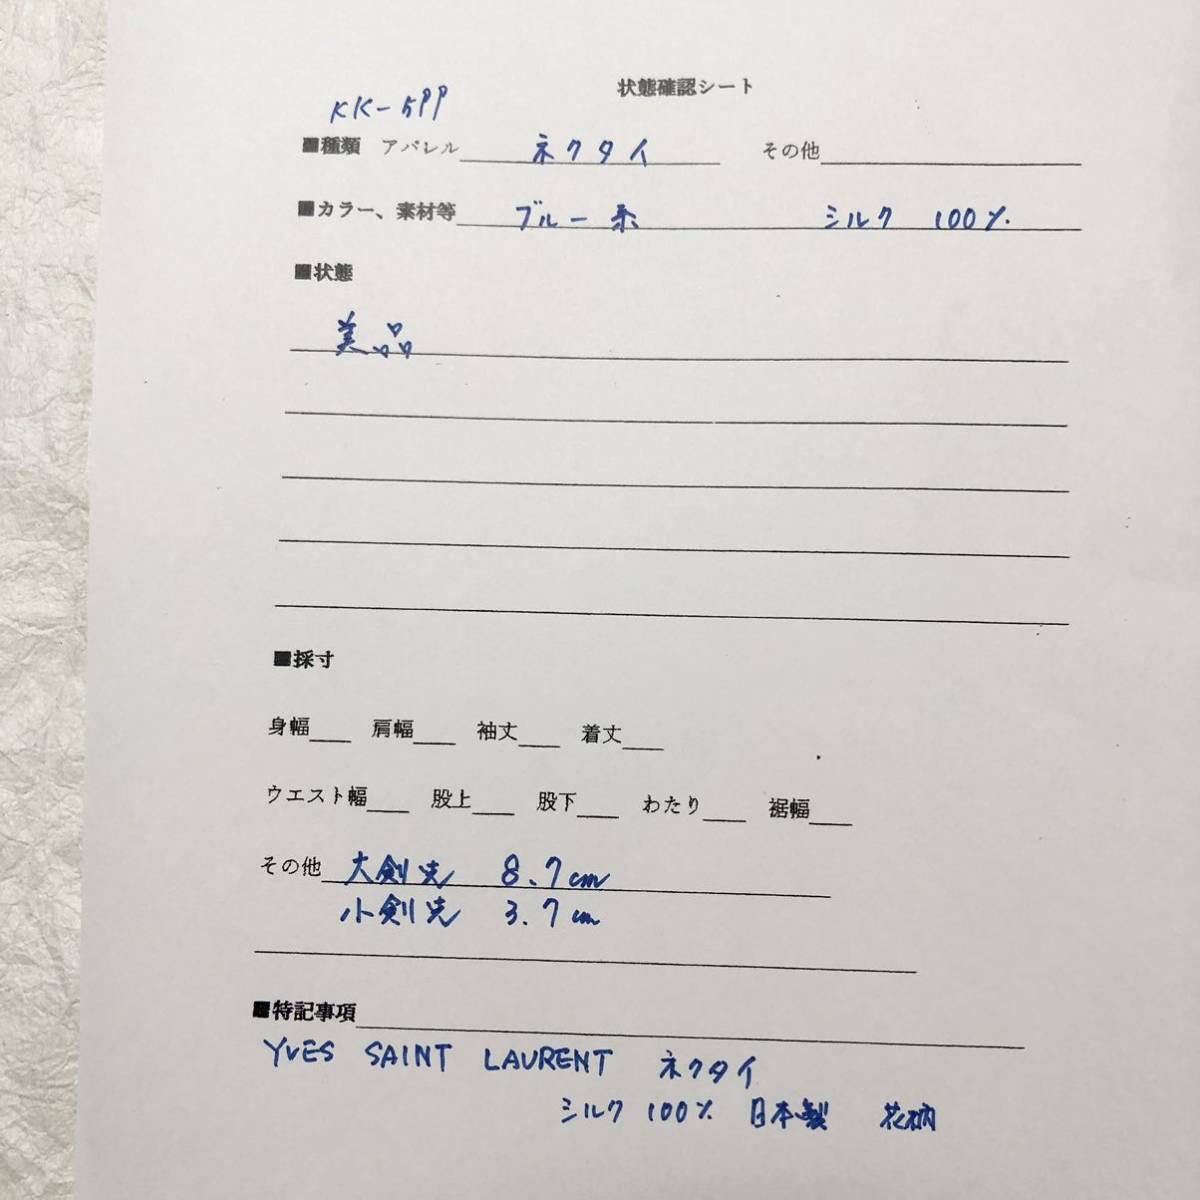 状態確認シート
KK-599
■種類 アパレル ネクタイ その他
■カラー、素材等 ブルー系 シルク 100%
■状態
美品
■採寸
身幅 肩幅 袖丈 着丈
ウエスト幅 股上 股下 わたり 裾幅
その他 大剣先 8.7cm
小剣先 3.7cm
■特記事項
YVES SAINT LAURENT ネクタイ
シルク 100% 日本製 花柄